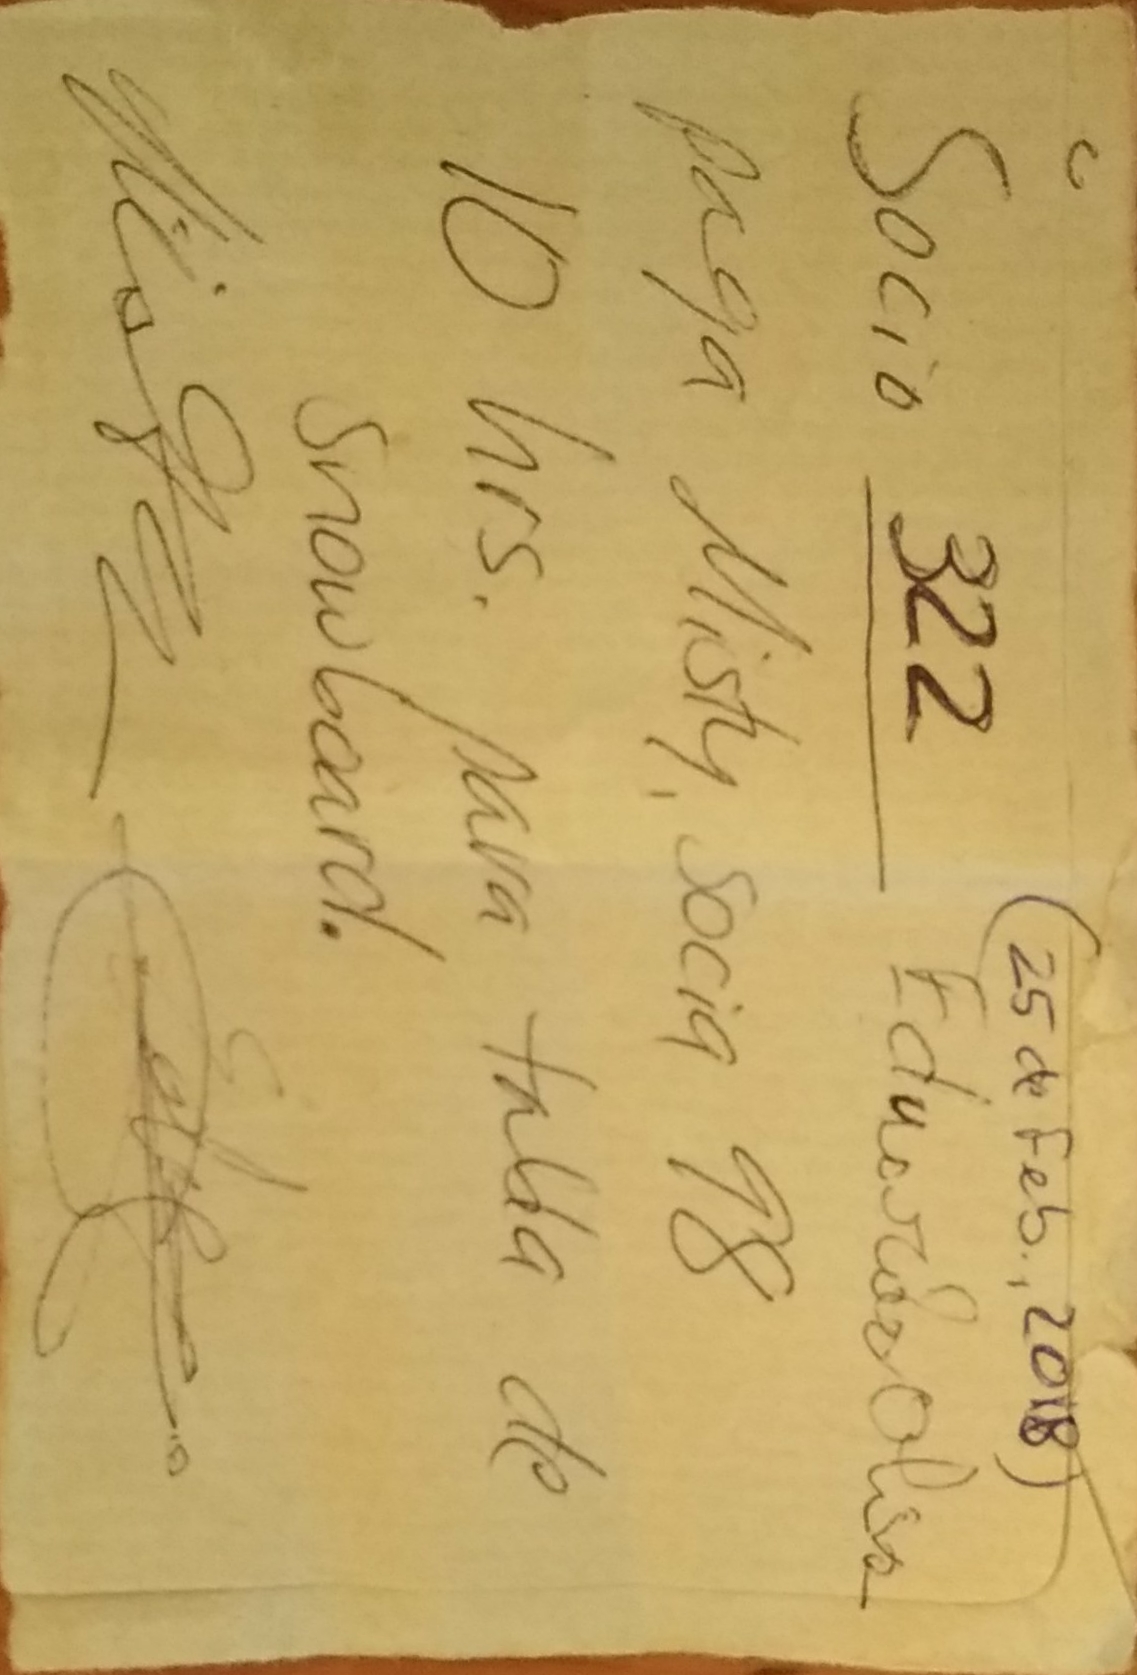 (25 de Feb., 2018)
Socio 322 Eduardo Oliva
paga Misty, socia 98
10 hrs. para tabla de
snowboard.
Misty